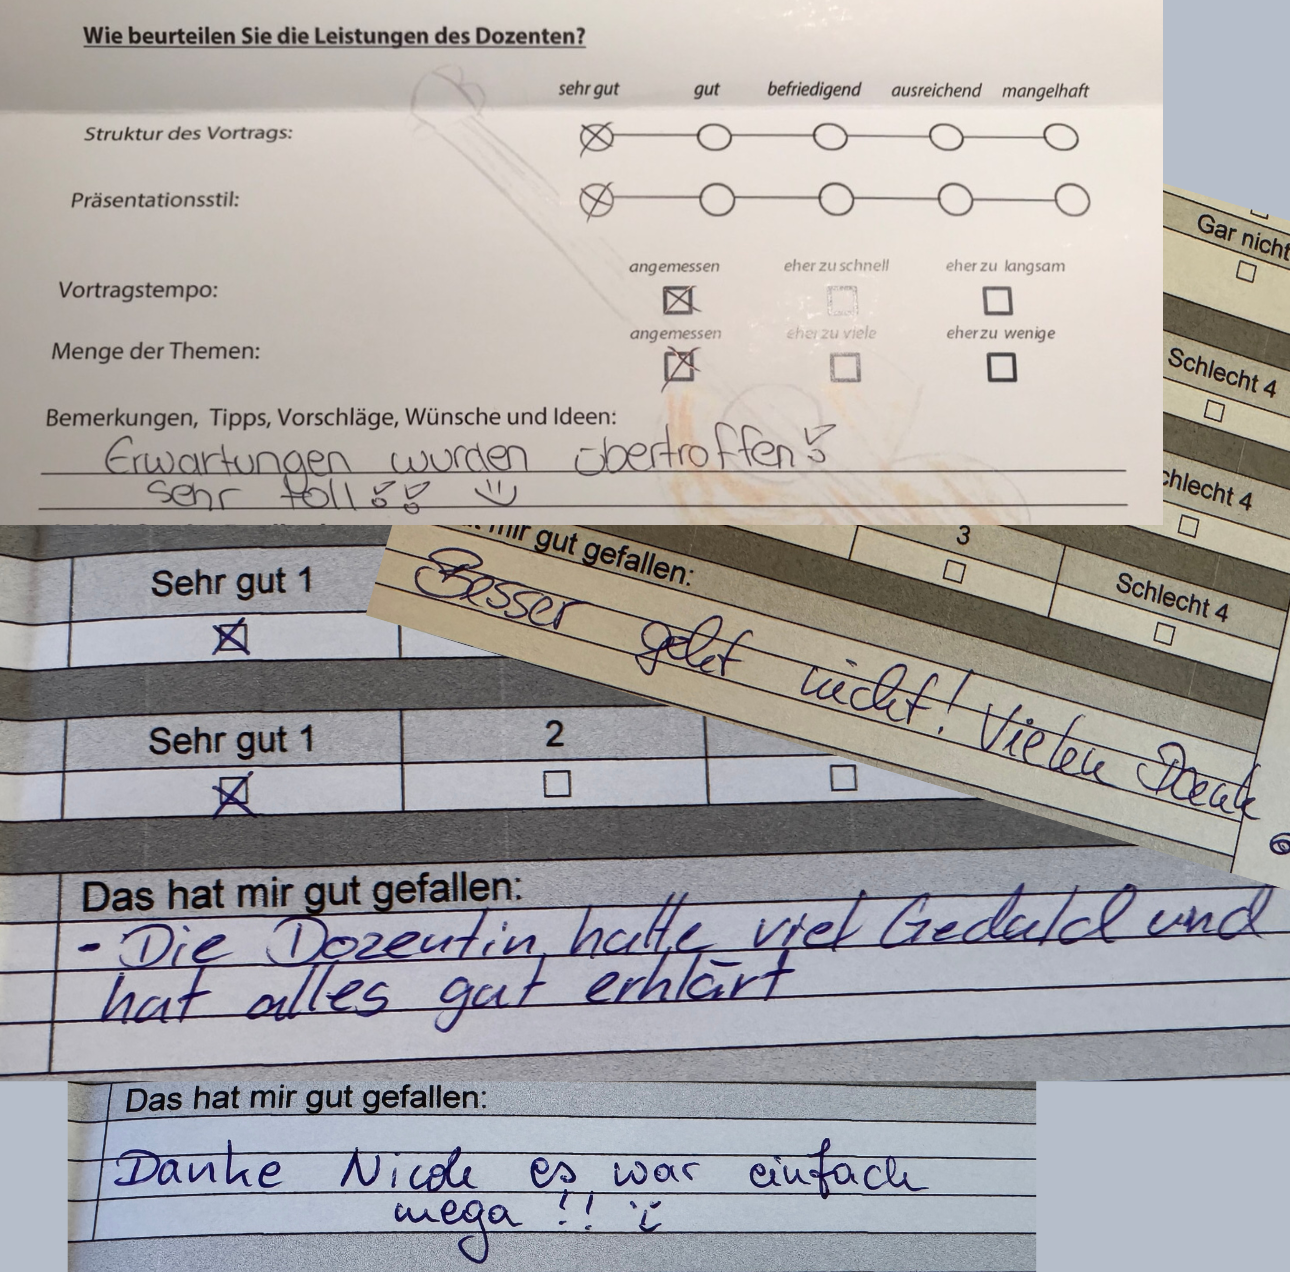 Wie beurteilen Sie die Leistungen des Dozenten?
sehr gut gut befriedigend ausreichend mangelhaft
Struktur des Vortrags:
Präsentationsstil:
angemessen eher zu schnell eher zu langsam
Vortragstempo:
angemessen eher zu viele eher zu wenige
Menge der Themen:
Bemerkungen, Tipps, Vorschläge, Wünsche und Ideen:
Erwartungen wurden übertroffen!
Sehr toll!! :)
Gar nicht
Schlecht 4
chlecht 4
3
Schlecht 4
mir gut gefallen:
Besser geht nicht! Vielen Dank
Sehr gut 1
Sehr gut 1 2
Das hat mir gut gefallen:
- Die Dozentin hatte viel Geduld und
hat alles gut erklärt
Das hat mir gut gefallen:
Danke Nicole es war einfach
mega !! :)